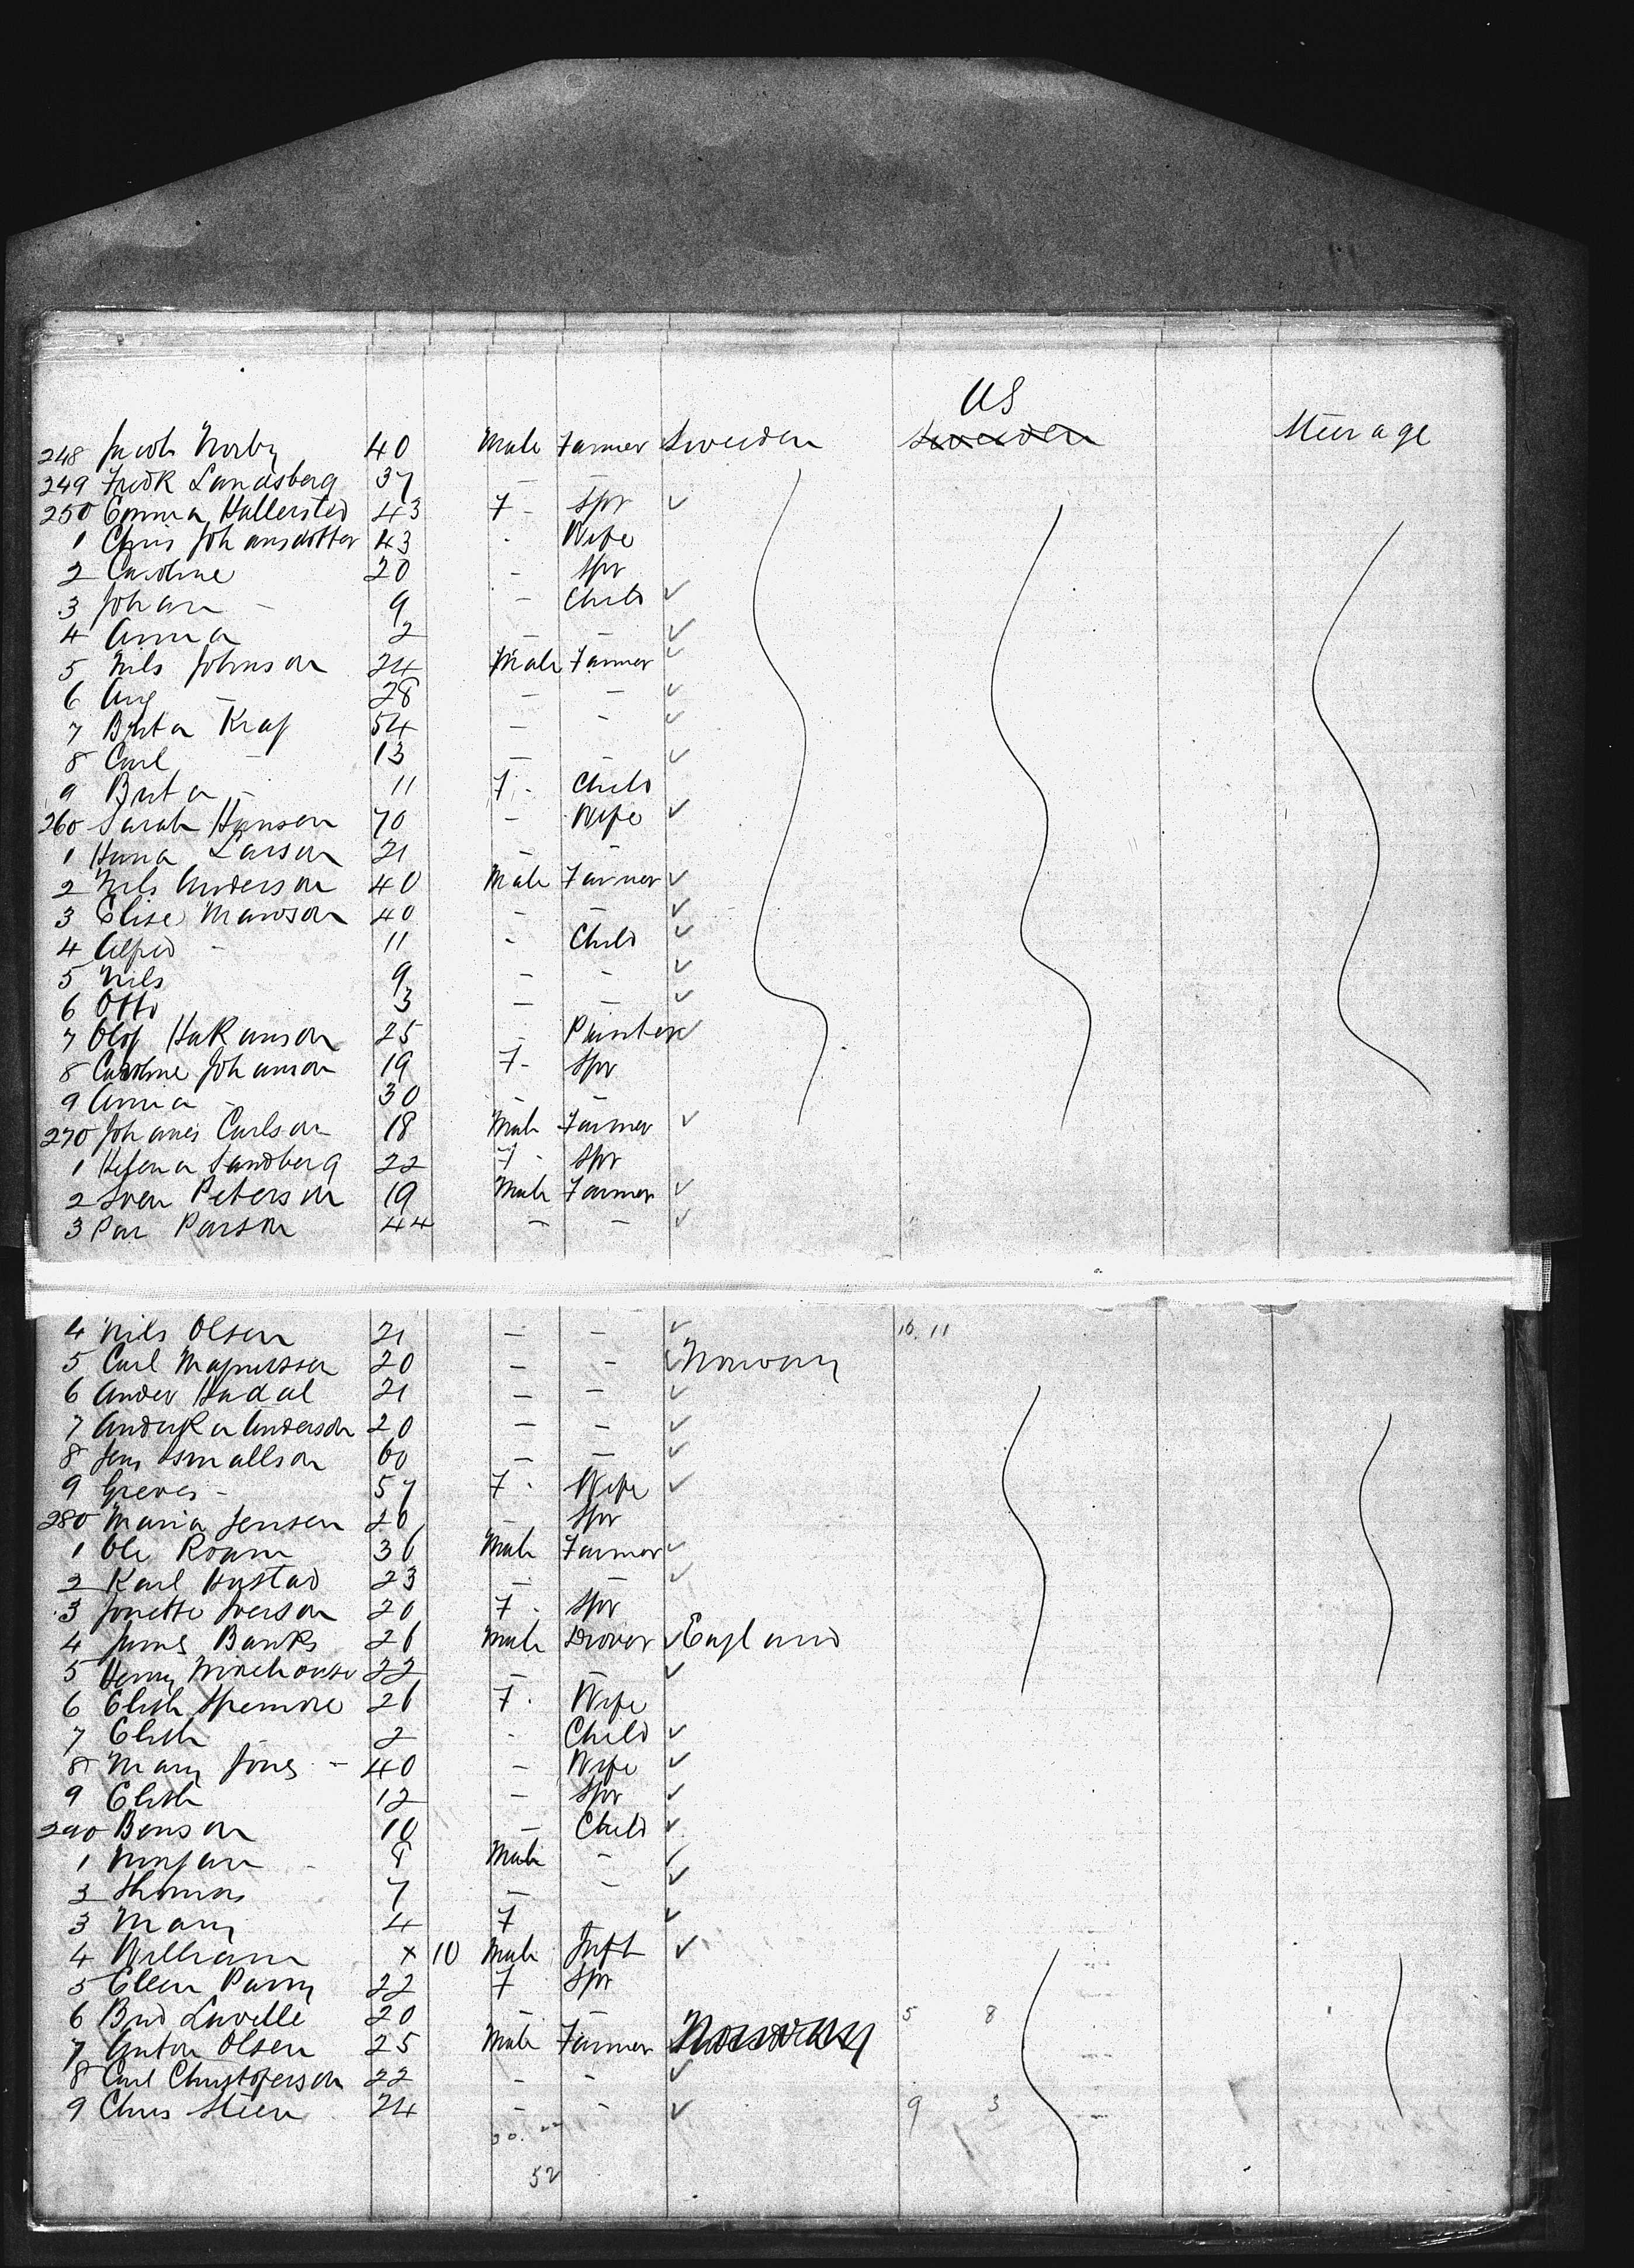 US
248 Jacob Norby 40 Male Farmer Sweden Sweden Steerage
249 Fredk Landsberg 37 — —
250 Emma Hallersted 43 F - Spr ✓
1 Chris Johansdotter 43 - Wife
2 Caroline 20 - Spr
3 Johan - 9 - Child ✓
4 Anna 2 — — ✓
5 Nils Johnson 24 Male Farmer ✓
6 Aug — 28 — — ✓
7 Brita Kraf 54 — - ✓
8 Carl - 13 — — ✓
9 Brita - 11 F. - Child
260 Sarah Hanson 70 - Wife ✓
1 Hana Larson 21 — —
2 Nils Anderson 40 Male Farmer ✓
3 Elise Manson 40 - — ✓
4 Alfred - 11 - Child ✓
5 Nils 9 — - ✓
6 Otto 3 — — ✓
7 Olof Hakanson 25 - Painter ✓
8 Caroline Johanson 19 F - Spr
9 Anna - 30 — —
270 Johanes Carlson 18 Male Farmer ✓
1 Helena Sandberg 22 F - Spr
2 Sven Peterson 19 Male Farmer ✓
3 Par Parson 44 — — ✓
4 Nils Olsen 21 — — ✓ 16. 11
5 Carl Magnusson 20 — - ✓ Norway
6 Ander Hadal 21 — — ✓
7 Anderson 20 — — ✓
8 Jens 60 — — ✓
9 - 57 F - Wife ✓
280 Maria Jensen 20 — Spr
1 Ole Roam 36 Male Farmer ✓
2 Karl Hystad 23 — — ✓
3 Jonette Iverson 20 F - Spr
4 James Banks 26 Male Drover ✓ England
5 Henry 22 — — ✓
6 Elisth 26 F. Wife
7 Elisth 2 - Child ✓
8 Mary Jones — 40 — Wife ✓
9 Elisth 12 — Spr ✓
290 Benson 10 — Child ✓
1 - 8 Male - ✓
2 Thomas 7 — - ✓
3 Mary 4 F ✓
4 William x 10 Male Inft ✓
5 Ellen Parry 22 F Spr
6 Brid Lavelle 20 — — 5 8
7 Anton Olsen 25 Male Farmer Norway
8 Carl Christoferson 22 - - ✓
9 Chris Steen 24 - - ✓ 9 3
52